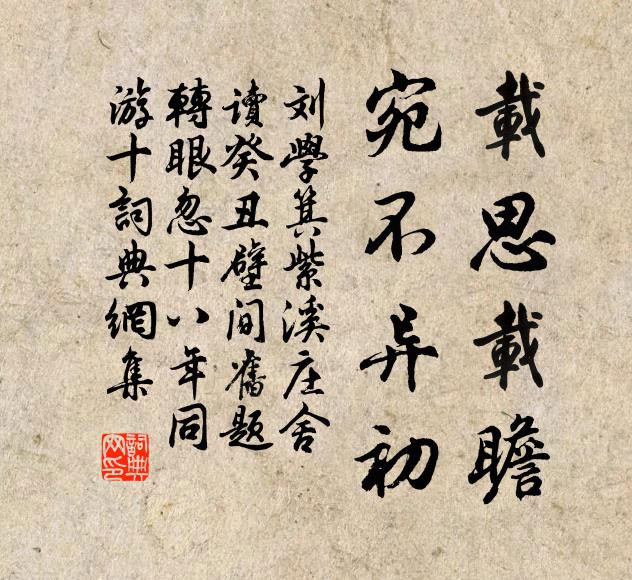 載思載瞻
宛不异初
刘學箕紫溪庄舍
讀癸丑壁间舊題
轉眼忽十八年同
游十詞典網集
詞典
网印